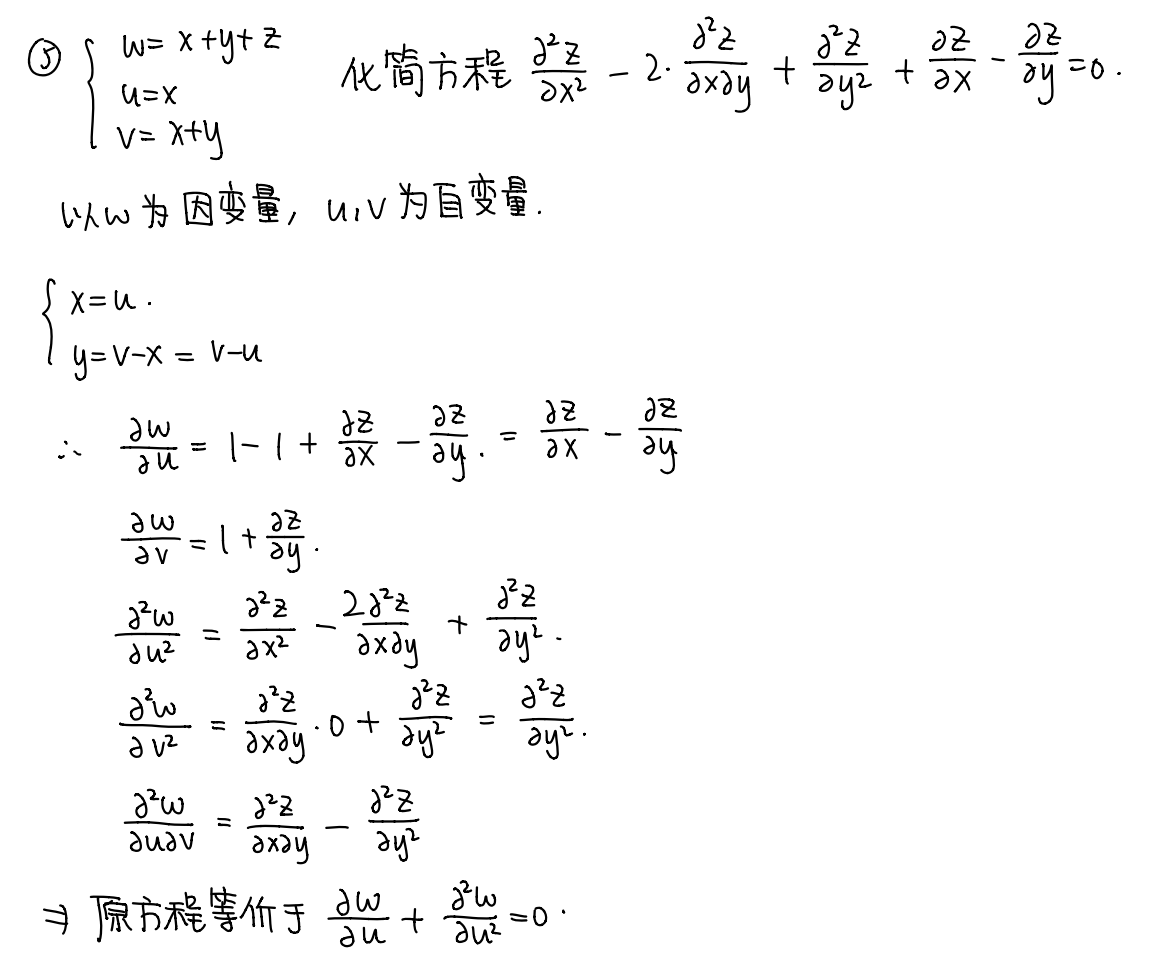 ⑤ { w = x+y+z
u=x
v= x+y
化简方程 ∂²z/∂x² − 2·∂²z/∂x∂y + ∂²z/∂y² + ∂z/∂x − ∂z/∂y =0.
以w为因变量, u,v为自变量.
{ x=u.
y=v-x = v-u
∴ ∂w/∂u = 1-1 + ∂z/∂x − ∂z/∂y. = ∂z/∂x − ∂z/∂y
∂w/∂v = 1 + ∂z/∂y.
∂²w/∂u² = ∂²z/∂x² − 2∂²z/∂x∂y + ∂²z/∂y².
∂²w/∂v² = ∂²z/∂x∂y · 0 + ∂²z/∂y² = ∂²z/∂y².
∂²w/∂u∂v = ∂²z/∂x∂y − ∂²z/∂y²
⇒ 原方程等价于 ∂w/∂u + ∂²w/∂u² =0.